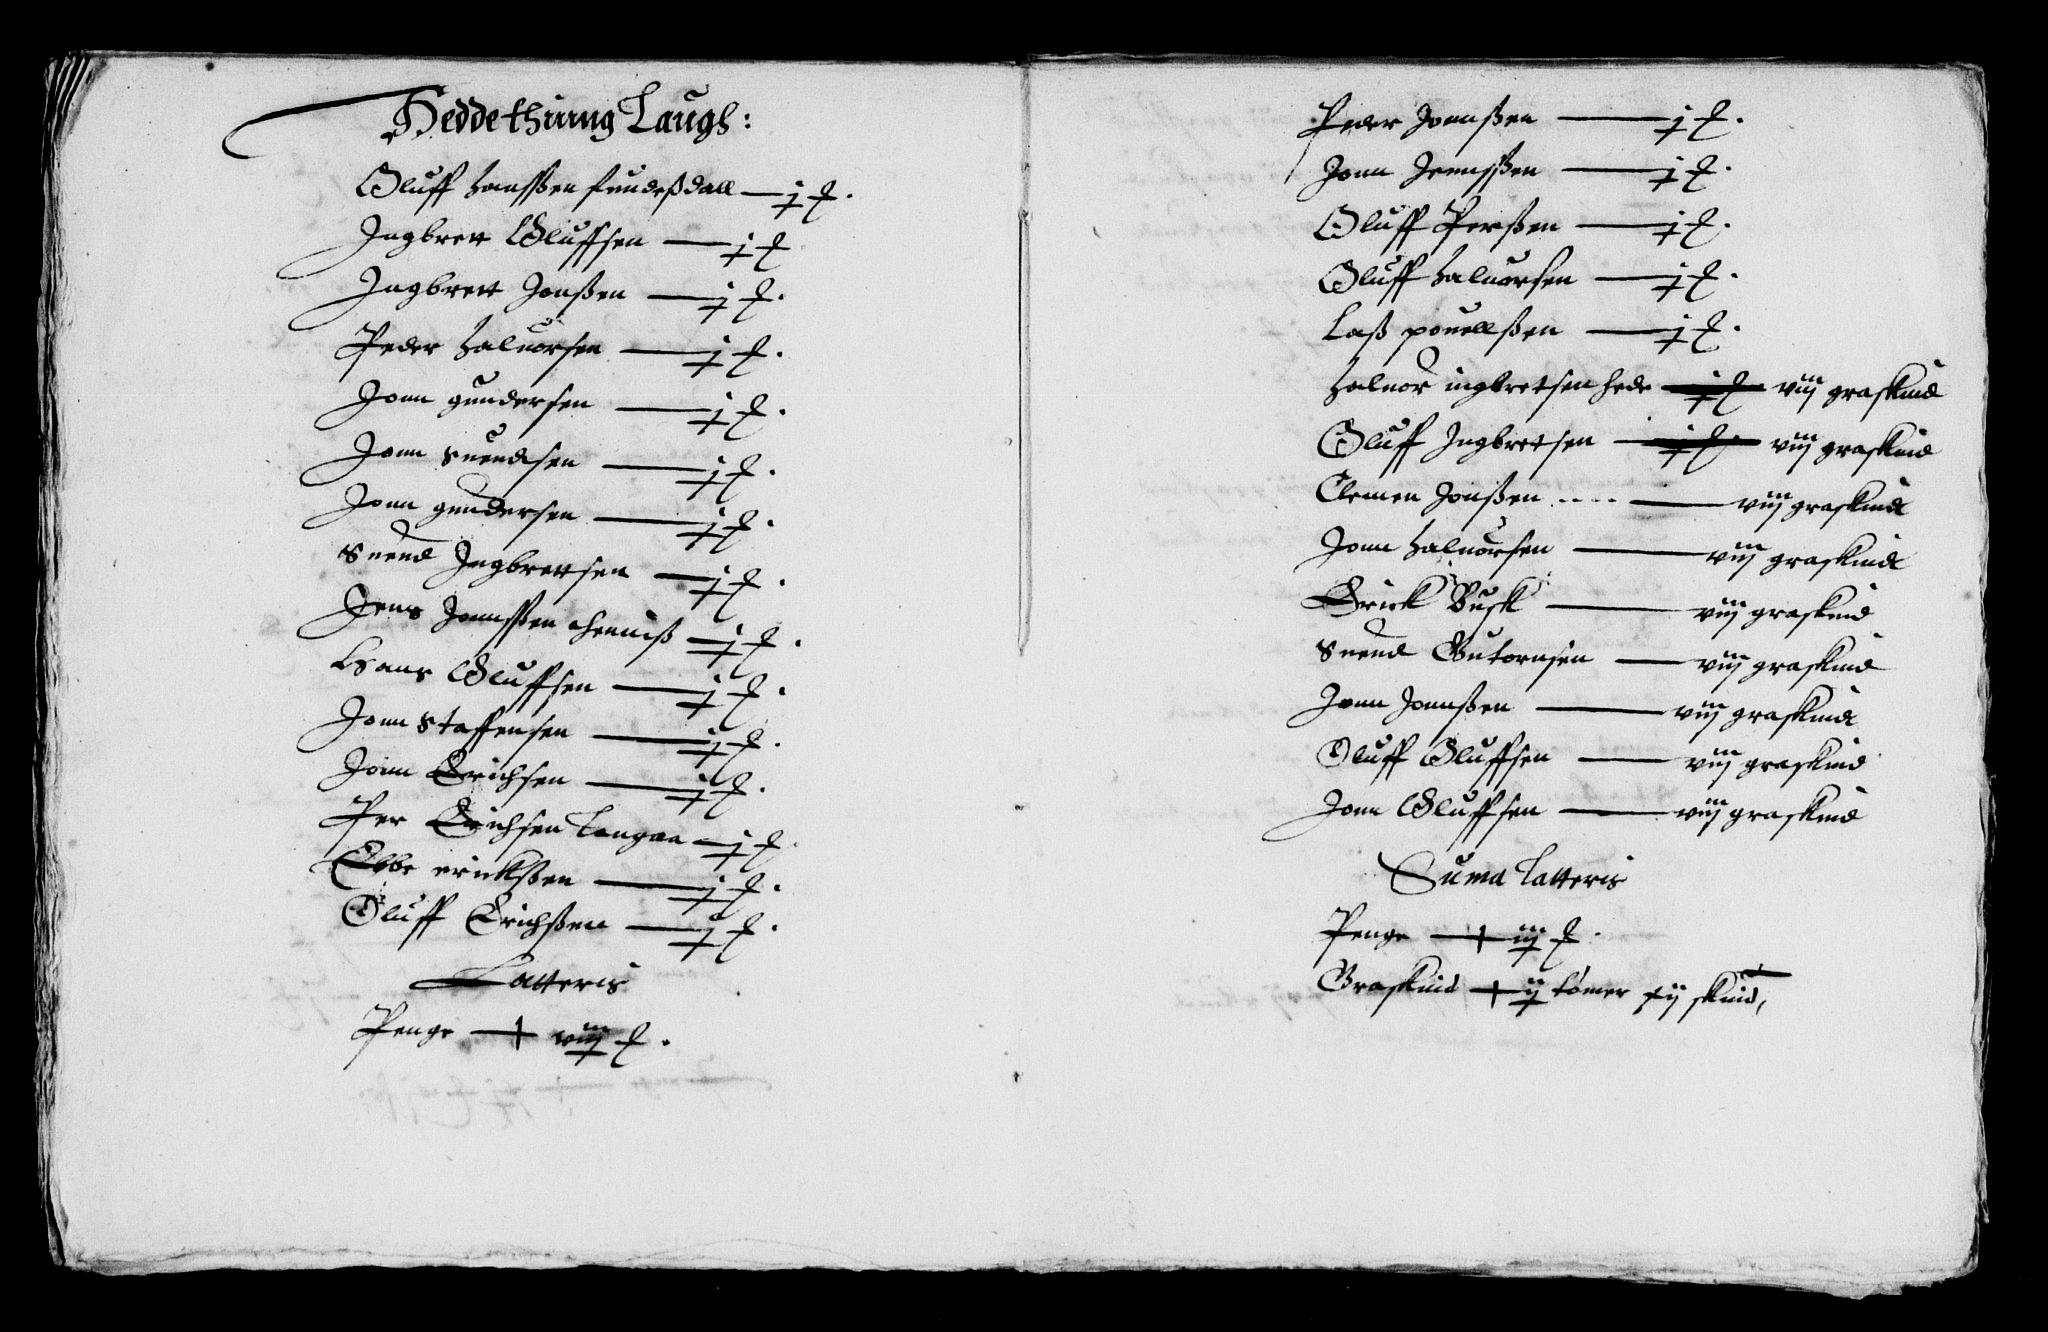 Heddethinng Laugh:
Oluff Hansßen sundeßdall — j
Ingbrett Oluffsen — j
Ingbrett Jonßen — j
Peder Haluorsen — j
Jonn gundersen — j
Jonn Suendsen — j
Jonn gundersen — j
Suend Ingbrettsen — j
Jens Jonnsßen — j
Hans Oluffsen — j
Jonn Staffensen — j
Jonn Erichsen — j
Per Erichsen Langaa — j
Ebbe erickßen — j
Oluff Erichßen — j
Latteris
Penge — viij
Peder Jonnßen — j
Jonn Jennsßen — j
Oluff Perßen — j
Oluff Haluorsen — j
Laß pouellßen — j
Haluor ingbretsen hede — j viij graskind
Oluff Ingbretsen — j viij graskind
Clemen Jonßen .... — viij graskind
Jonn Haluorsen — viij graskind
Erick Busk — viij graskind
Suend Gutornsen — viij graskind
Jonn Jonnßen — viij graskind
Oluff Oluffsen — viij graskind
Jonn Oluffsen — viij graskind
Suma Latteris
Penge — iij
Graskind — ij tømer xij skind,